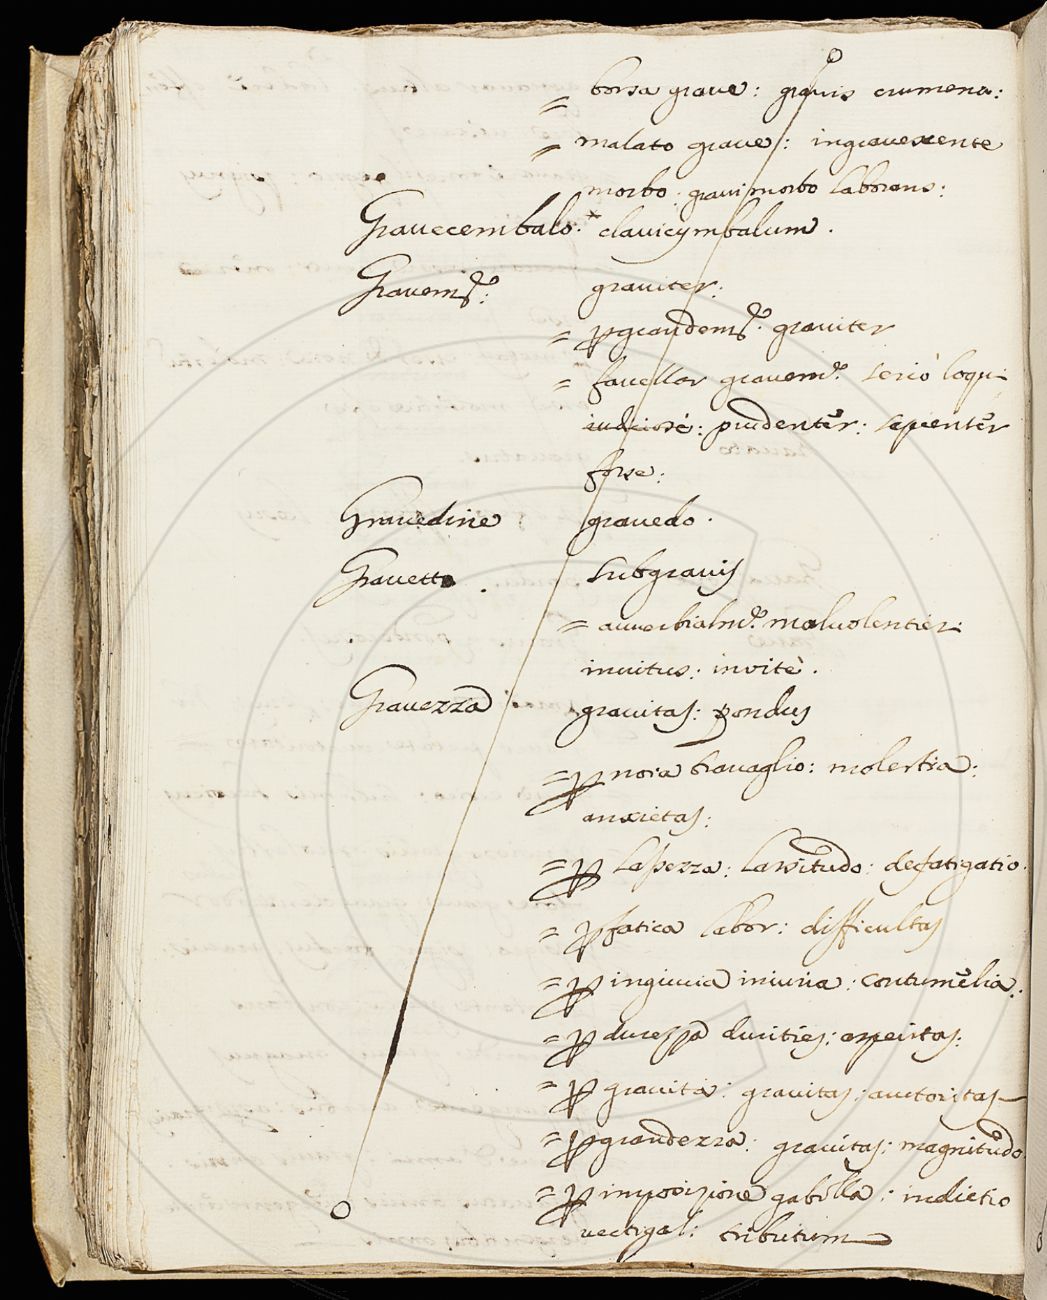 = borsa graue: grauis crumena:
= malato graue: ingrauescente
morbo: graui morbo laborans:
Grauecembalo. clauicymbalum.
Grauemte: grauiter:
= p grandemte. grauiter
= fauellar grauemte. seriò loqui
iudiciosè: prudenter: sapienter
forse:
Grauedine grauedo.
Grauetto. subgrauis
= auuerbialmte. maluolentier:
inuitus: invitè.
Grauezza grauitas: pondus
= p noia trauaglio: molestia:
anxietas:
= p lassezza: lassitudo: defatigatio.
= p fatica labor: difficultas
= p ingiuria iniuria: contumelia:
= p durezza durities: asperitas:
= p grauità: grauitas: auctoritas
= p grandezza: grauitas: magnitudo
= p imposizione gabella: indictio
vectigal: tributum